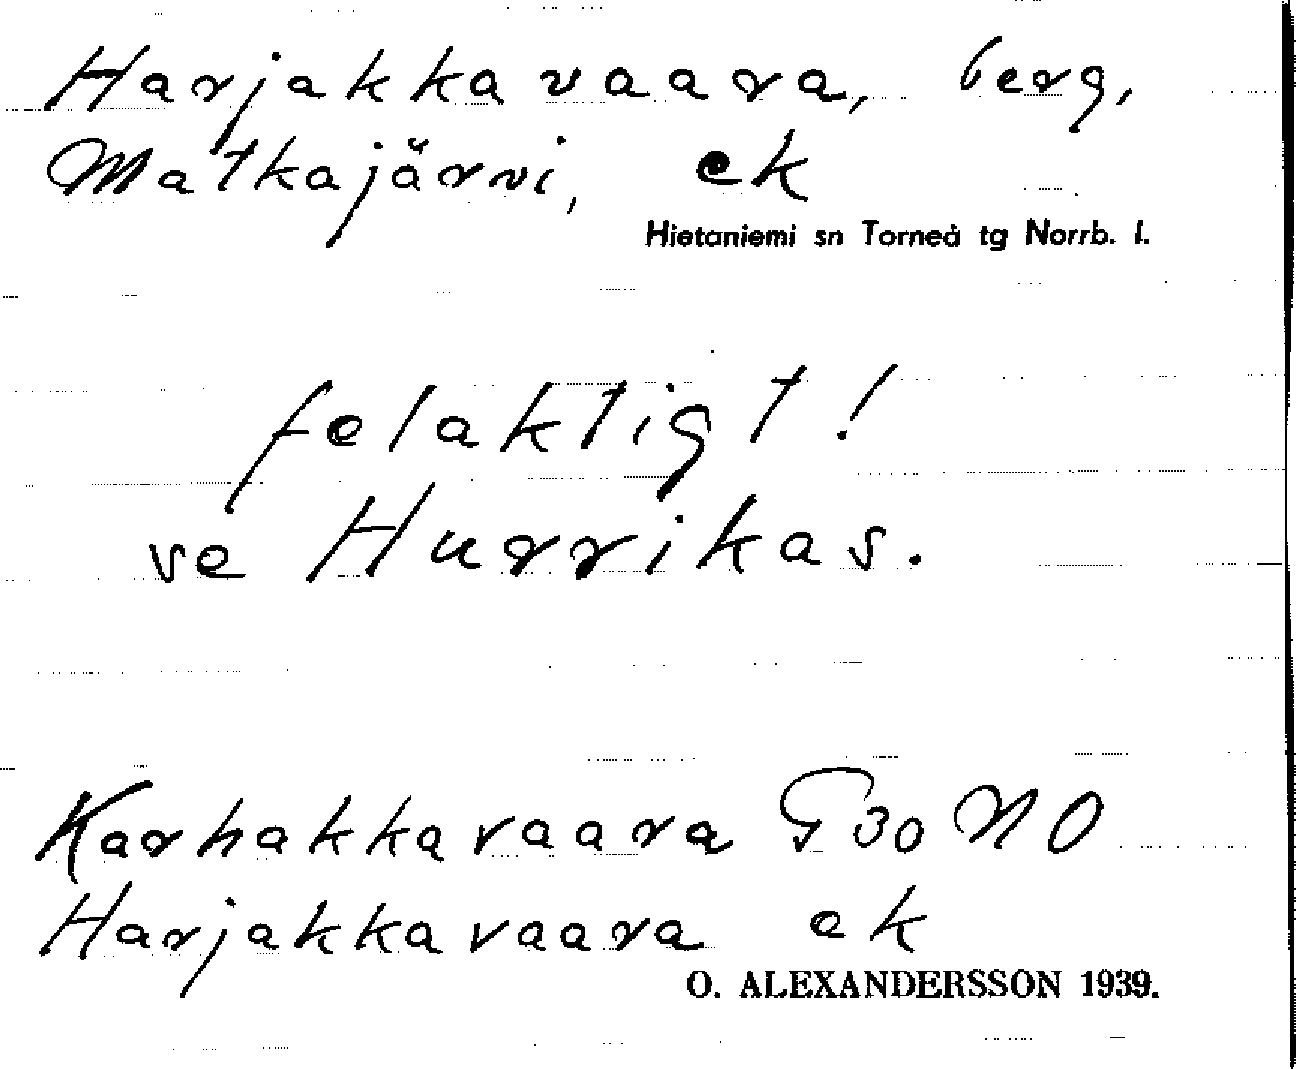 Harjakkavaara, berg,
Matkajärvi, ek
Hietaniemi sn Torneå tg Norrb. l.
felaktigt!
se Hurrikas.
Karhakkavaara G 30 NO
Harjakkavaara ek
O. ALEXANDERSSON 1939.